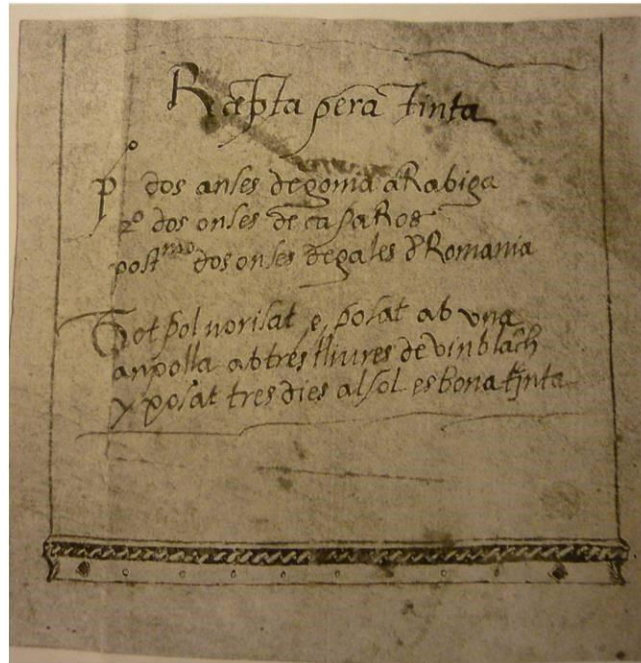 Ræpta pera tinta
pº dos anses de goma aRabiga
2º dos onses de capaRos
postmo dos onses de gales d Romania
Tot polvorisat e, posat ab vna
anpolla ab tres lliures de vin blāch
y posat tres dies al sol es bona tinta